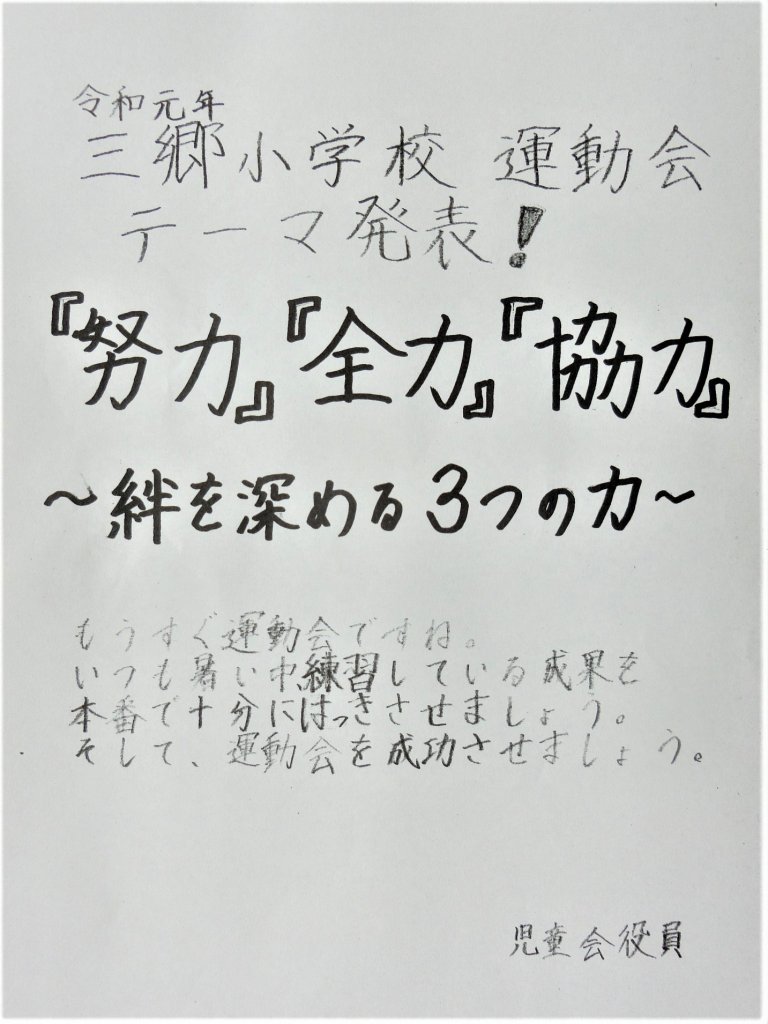 令和元年
三郷小学校 運動会
テーマ発表!
『努力』『全力』『協力』
~絆を深める3つの力~
もうすぐ運動会ですね。
いつも暑い中練習している成果を
本番で十分にはっきさせましょう。
そして、運動会を成功させましょう。
児童会役員